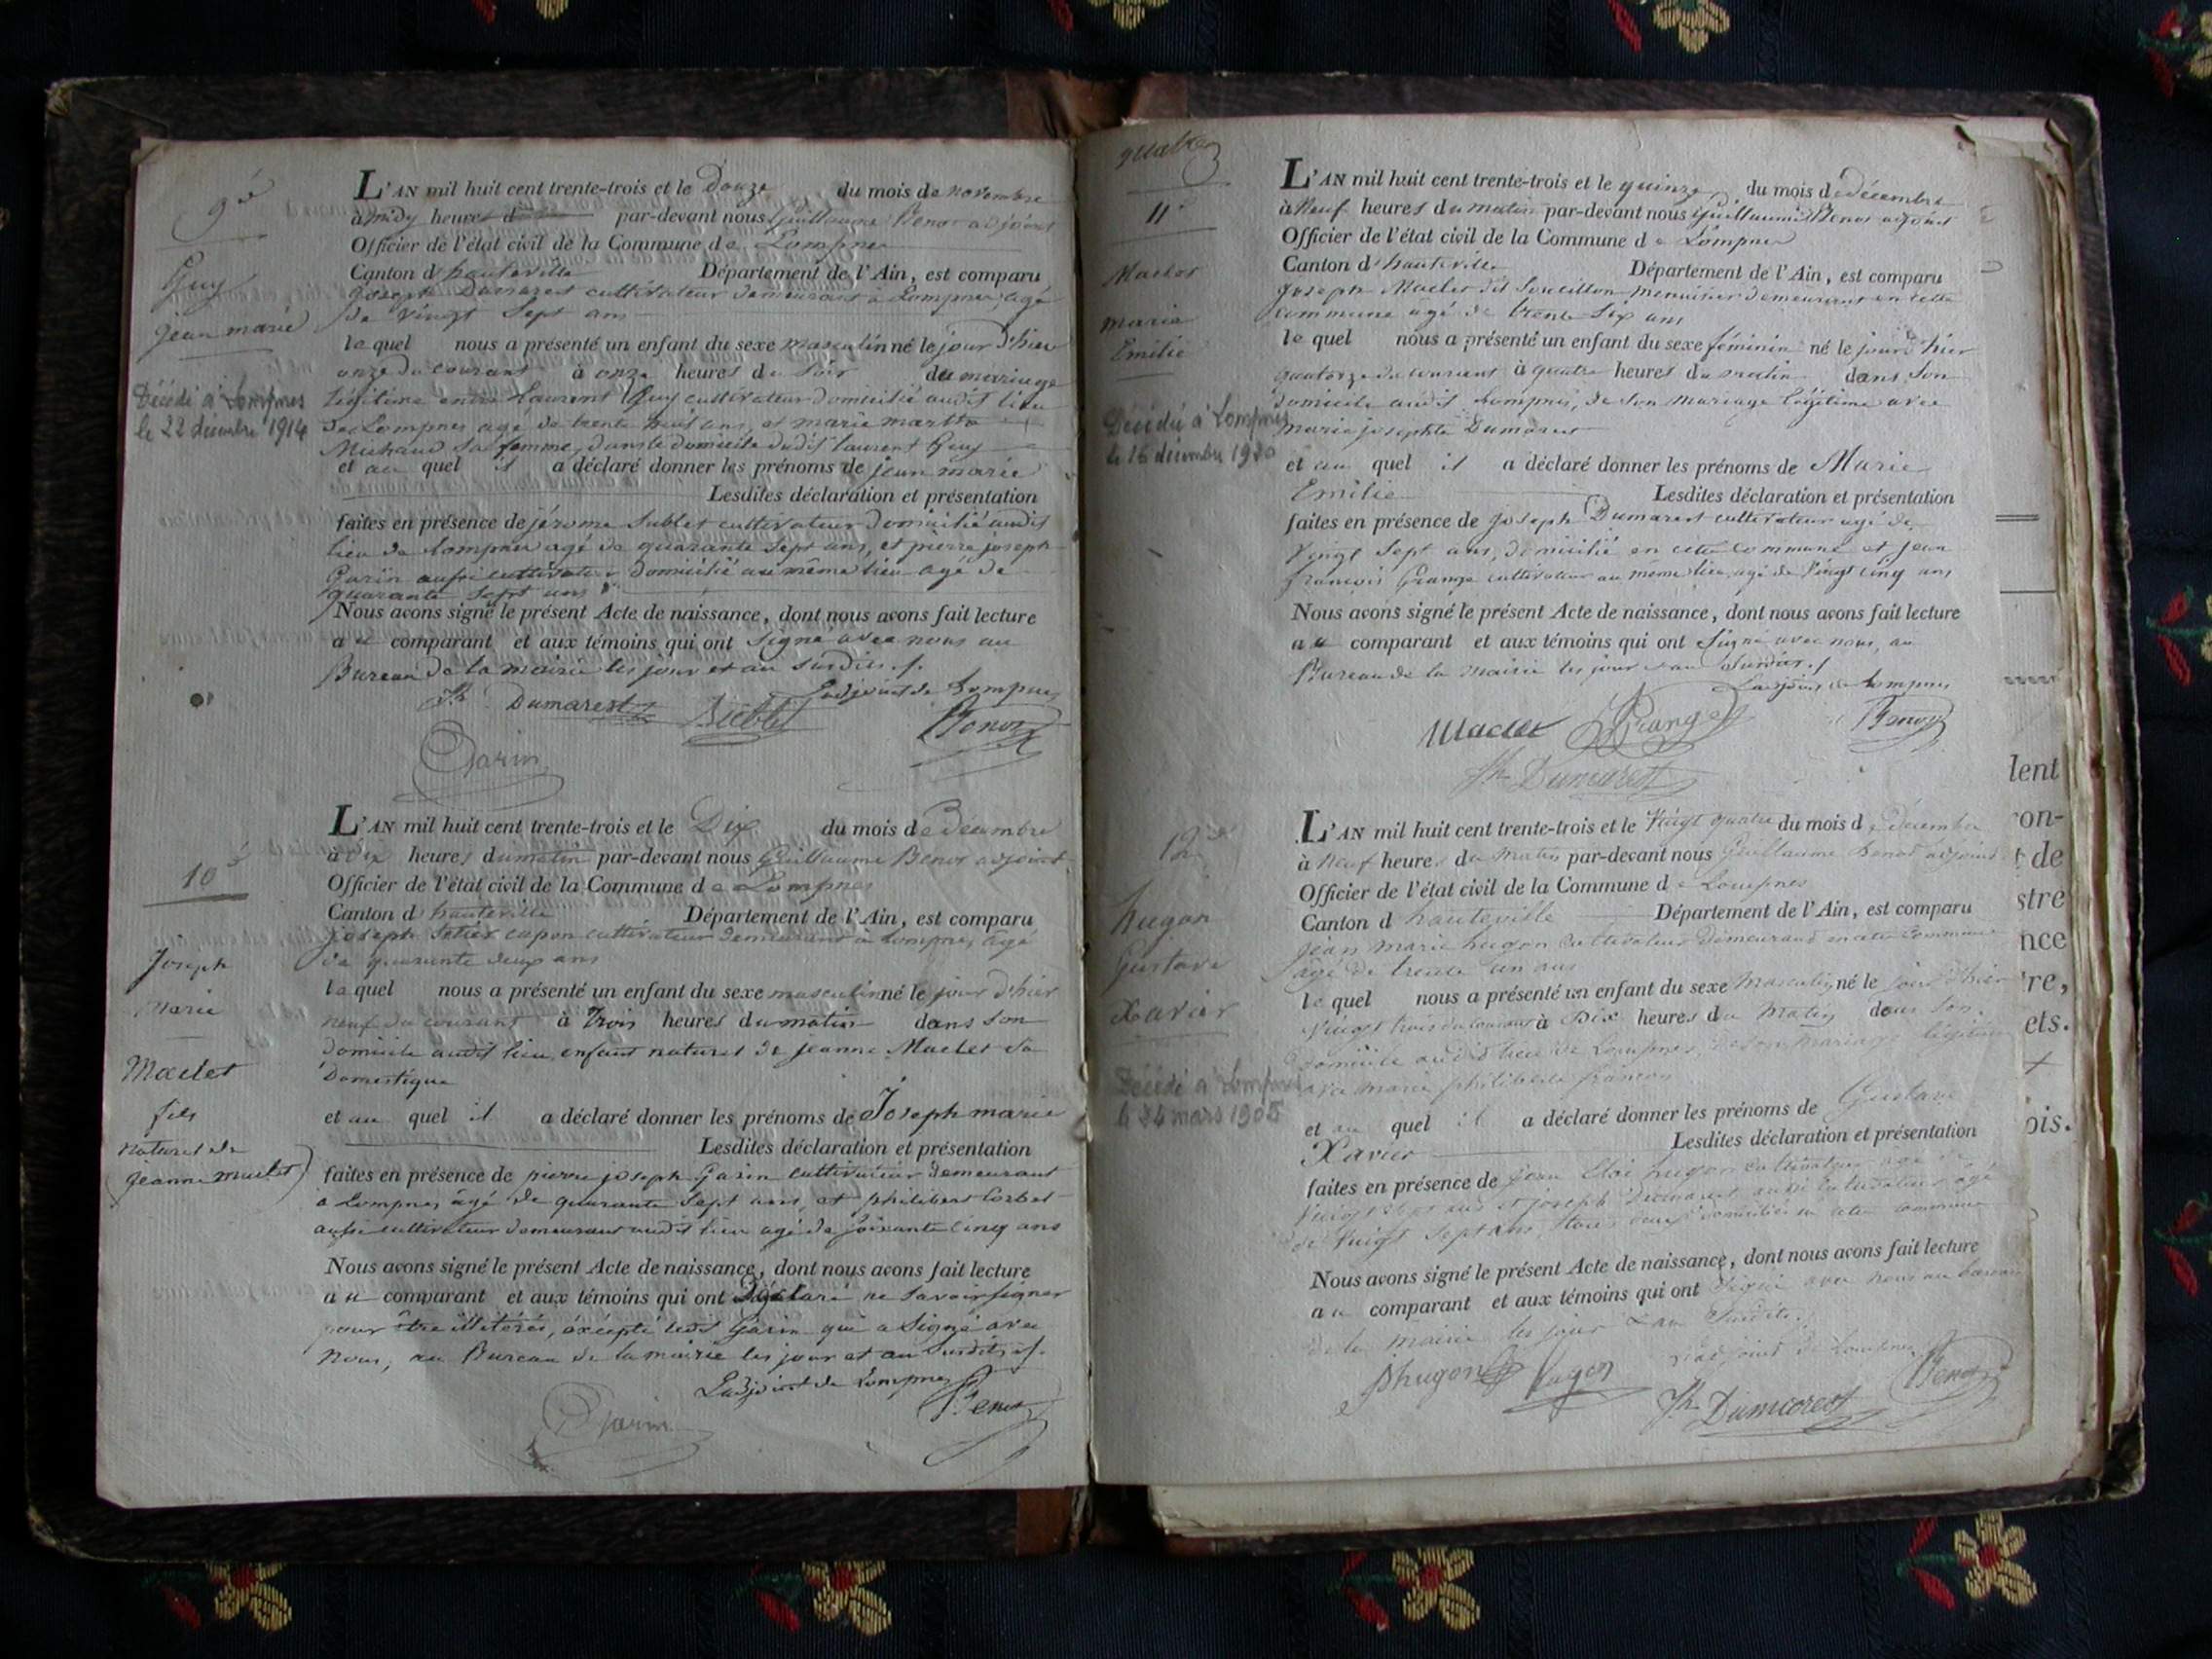 9e
Guy
jean marie
Décédé à Lompnes
le 22 décembre 1914
L'AN mil huit cent trente-trois et le Douze du mois de novembre
à midy heures d par-devant nous Guillaume Benot adjoint
Officier de l'état civil de la Commune de Lompnes
Canton d'hauteville Département de l'Ain, est comparu
Joseph Dumarest cultivateur demeurant à Lompnes, agé
de vingt Sept ans
lequel nous a présenté un enfant du sexe masculin né le jour d'hier
onze du courant à onze heures du Soir du mariage
légitime entre Laurent Guy cultivateur domicilié audit lieu
de Lompnes agé de trente huit ans, et marie martha
Michaud Sa femme, dans le domicile dudit laurent Guy
et au quel il a déclaré donner les prénoms de jean marie
Lesdites déclaration et présentation
faites en présence de jérome Sublet cultivateur domicilié audit
lieu de Lompnes agé de quarante Sept ans, et pierre joseph
Garin aussi cultivateur domicilié au même lieu agé de
quarante Sept ans
Nous avons signé le présent Acte de naissance, dont nous avons fait lecture
au comparant et aux témoins qui ont Signé avec nous au
Bureau de la mairie les jour et an Susdits.
L'adjoint de Lompnes
Jh Dumarest Sublet Benot
Garin
10e
Joseph
Marie
Maclet
fils
naturel de
jeanne maclet
L'AN mil huit cent trente-trois et le Dix du mois de Décembre
à Dix heures du matin par-devant nous Guillaume Benot adjoint
Officier de l'état civil de la Commune de Lompnes
Canton d'hauteville Département de l'Ain, est comparu
joseph cultivateur demeurant à Lompnes, âgé
de quarante deux ans
lequel nous a présenté un enfant du sexe masculin né le jour d'hier
neuf du courant à Trois heures du matin dans Son
domicile audit lieu, enfant naturel de jeanne Maclet Sa
Domestique
et au quel il a déclaré donner les prénoms de Joseph marie
Lesdites déclaration et présentation
faites en présence de pierre joseph Garin cultivateur demeurant
à Lompnes âgé de quarante Sept ans, et philibert Corbet
aussi cultivateur demeurant audit lieu agé de Soixante Cinq ans
Nous avons signé le présent Acte de naissance, dont nous avons fait lecture
au comparant et aux témoins qui ont Déclaré ne Savoir signer
pour être illitérés, éxcepté ledit Garin qui a Signé avec
Nous, au Bureau de la mairie les jour et an Susdits.
L'adjoint de Lompnes
Garin Benot
quatre
11e
Maclet
marie
Emilie
Décédée à Lompnes
le 16 décembre 1920
L'AN mil huit cent trente-trois et le quinze du mois de décembre
à Neuf heures du matin par-devant nous Guillaume Benot adjoint
Officier de l'état civil de la Commune de Lompnes
Canton d'hauteville Département de l'Ain, est comparu
Joseph Maclet dit menuisier demeurant en cette
commune agé de trente Six ans
lequel nous a présenté un enfant du sexe féminin né le jour d'hier
quatorze du courant à quatre heures du matin dans Son
domicile audit Lompnes, de Son mariage légitime avec
marie josephte Dumarest
et au quel il a déclaré donner les prénoms de Marie
Emilie Lesdites déclaration et présentation
faites en présence de Joseph Dumarest cultivateur agé de
Vingt Sept ans, domicilié en cette commune et jean
françois Grange cultivateur au même lieu, agé de Vingt cinq ans
Nous avons signé le présent Acte de naissance, dont nous avons fait lecture
au comparant et aux témoins qui ont Signé avec nous, au
Bureau de la Mairie les jour et an Susdits.
L'adjoint de Lompnes
Maclet Grange Benot
Jh Dumarest
12e
hugon
Gustave
Xavier
Décédé à Lompnes
le 24 mars 1905
L'AN mil huit cent trente-trois et le Vingt quatre du mois de décembre
à Neuf heures du matin par-devant nous Guillaume Benot adjoint
Officier de l'état civil de la Commune de Lompnes
Canton d hauteville Département de l'Ain, est comparu
jean marie hugon cultivateur demeurand en cette commune
âgé de trente un ans
lequel nous a présenté un enfant du sexe masculin né le jour d'hier
Vingt trois du courant à Dix heures du Matin dans Son
domicile audit lieu de Lompnes, de Son mariage légitime
avec marie philiberte françon
et au quel il a déclaré donner les prénoms de Gustave
Xavier Lesdites déclaration et présentation
faites en présence de jean hugon cultivateur âgé de
Vingt Sept ans et joseph Dumarest aussi cultivateur agé
de Vingt Sept ans, tous deux domiciliés en cette commune
Nous avons signé le présent Acte de naissance, dont nous avons fait lecture
au comparant et aux témoins qui ont Signé avec Nous au bureau
de la mairie les jour et an Susdits.
L'adjoint de Lompnes
hugon hugon Benot
Jh Dumarest
lent
con-
t de
stre
nce
're,
ets.
ois.